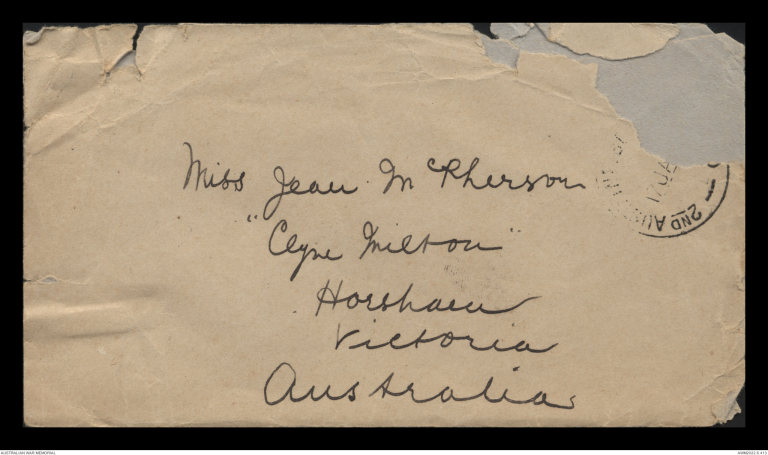 Miss Jean McPherson
"Clyne Milton"
Horsham
Victoria
Australia
2ND AUS
17 JA
AUSTRALIAN WAR MEMORIAL